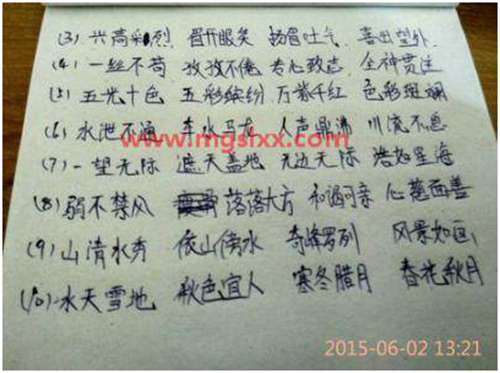 (3) 兴高彩烈 眉开眼笑 扬眉吐气 喜出望外
(4) 一丝不苟 孜孜不倦 专心致志 全神贯注
(5) 五光十色 五彩缤纷 万紫千红 色彩斑斓
(6) 水泄不通 车水马龙 人声鼎沸 川流不息
www.mgslxx.com
(7) 一望无际 遮天盖地 无边无际 浩如星海
(8) 弱不禁风 落落大方 和谒可亲 心慈面善
(9) 山清水秀 依山傍水 奇峰罗列 风景如画
(10) 水天雪地 秋色宜人 寒冬腊月 春花秋月
2015-06-02 13:21